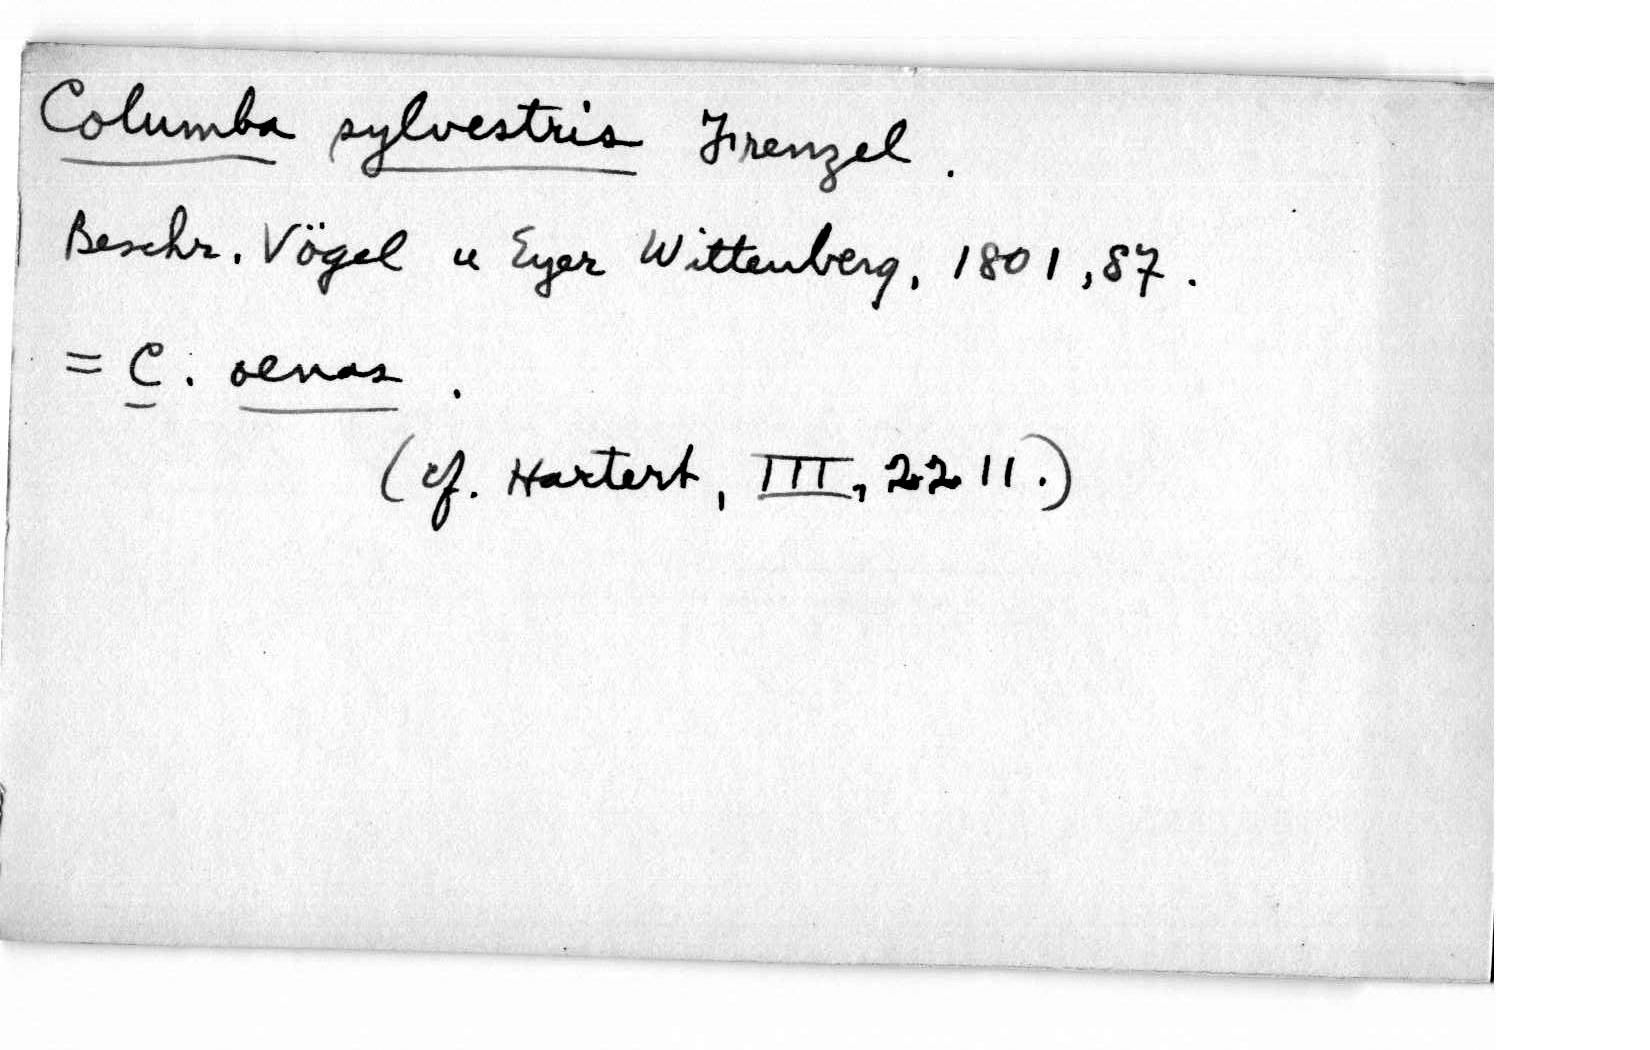 Columba sylvestris Frenzel.
Beschr. Vögel u Eyer Wittenberg, 1801, 87.
= C. oenas.
(cf. Hartert, III, 2211.)